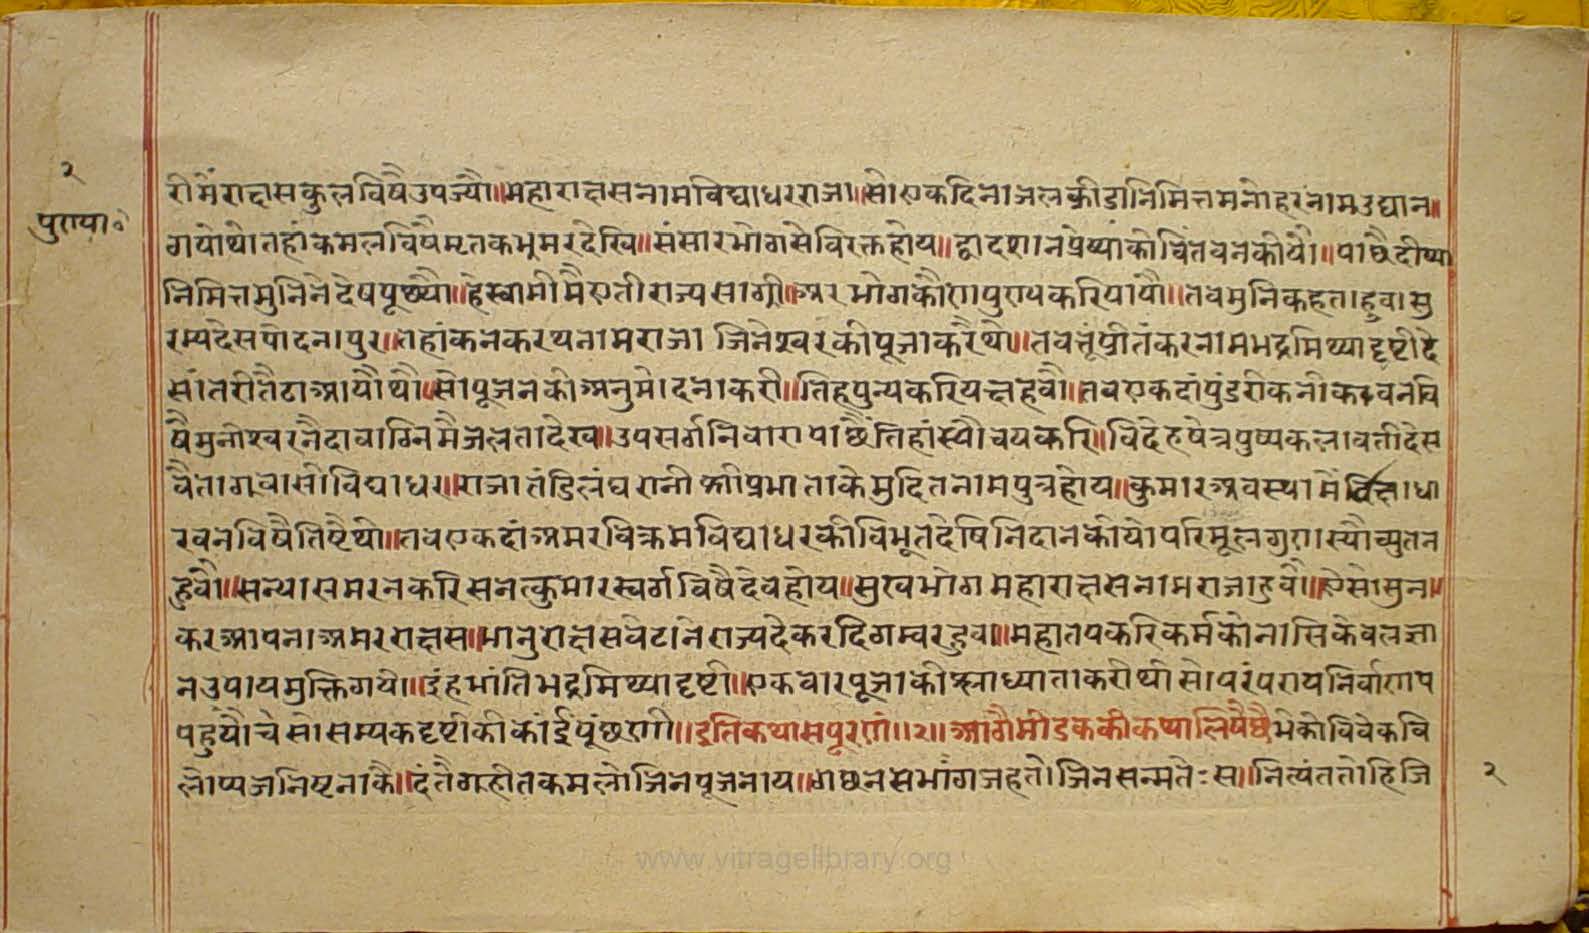 २
पुराया॰
रीमैंराक्षसकुलविषैउपज्यौ॥महाराक्षसनामविद्याधरराजा॥सोएकदिनाजलक्रीडानिमित्तमनोहरनामउद्यान॥
गयोथोतहांकमलविषैमृतकभ्रमरदेखि॥संसारभोगसेविरक्तहोय॥द्वादशानप्रेष्याकोचिंतवनकीयौ॥पाछैदीष्या
निमित्तमुनिनेदेषपूछ्यौ॥हेस्वामीमैएतीराज्यसागी॥अरभोगकौणपुण्यकरिपायौ॥तवमुनिकहताहुवासु
रम्यदेसपोदनापुर॥तहांकनकरथनामराजा जिनेश्वरकीपूजाकरैथो॥तवत्तूंप्रीतंकरनामभद्रमिथ्यादृष्टीदे
सांतरीतैटाआयौथौ॥सोपूजनकीअनुमोदनाकरी॥तिहपुन्यकरियक्षहवौ॥तवएकदांपुंडरीकनीकवनवि
षैमुनीश्वरनैदावाग्निमैजलतादेख॥उपसर्गनिवारापाछैतिहांस्यौचयकरि॥विदेहषेत्रपुष्पकलावतीदेस
वैतागवासीविद्याधर॥राजातंडिलंघरानीश्रीप्रभाताकेमुदितनामपुत्रहोय॥कुमारअवस्थामें
रवनविषैतिष्टैथौ॥तवएकदांअमरविक्रमविद्याधरकीविभूतदेषिनिदानकीयोपरिमूलगुणस्यौच्युतन
हुवौ॥सन्यासमरनकरिसनत्कुमारस्वर्गविषैदेवहोय॥सुखभोगमहाराक्षसनामराजाहुवौ॥ऐसोसुन॥
करआपनाअमरराक्षस॥भानुराक्षसवेटानेराज्यदेकरदिगम्वरहुवा॥महातपकरिकर्मकोनासिकेवलज्ञा
नउपायमुक्तिगयो॥इंहभांतिभद्रमिथ्यादृष्टी॥एकवारपूजाकीश्लाध्याताकरीथीसोपरंपरायनिर्वाणप
पहुंचौचेसोसम्यकदृष्टीकीकांईपूंछणी॥इतिकथासपूरणं॥२॥आगैमीडककीकथालिषैछैभेकोविवेकवि
लोप्यजनिष्टनाकै॥दंतैगहीतकमलोजिनपूजनाय॥गछनसभांगजहतोजिनसन्मतेःस॥नित्यंततोहिजि
२
www.vitragelibrary.org